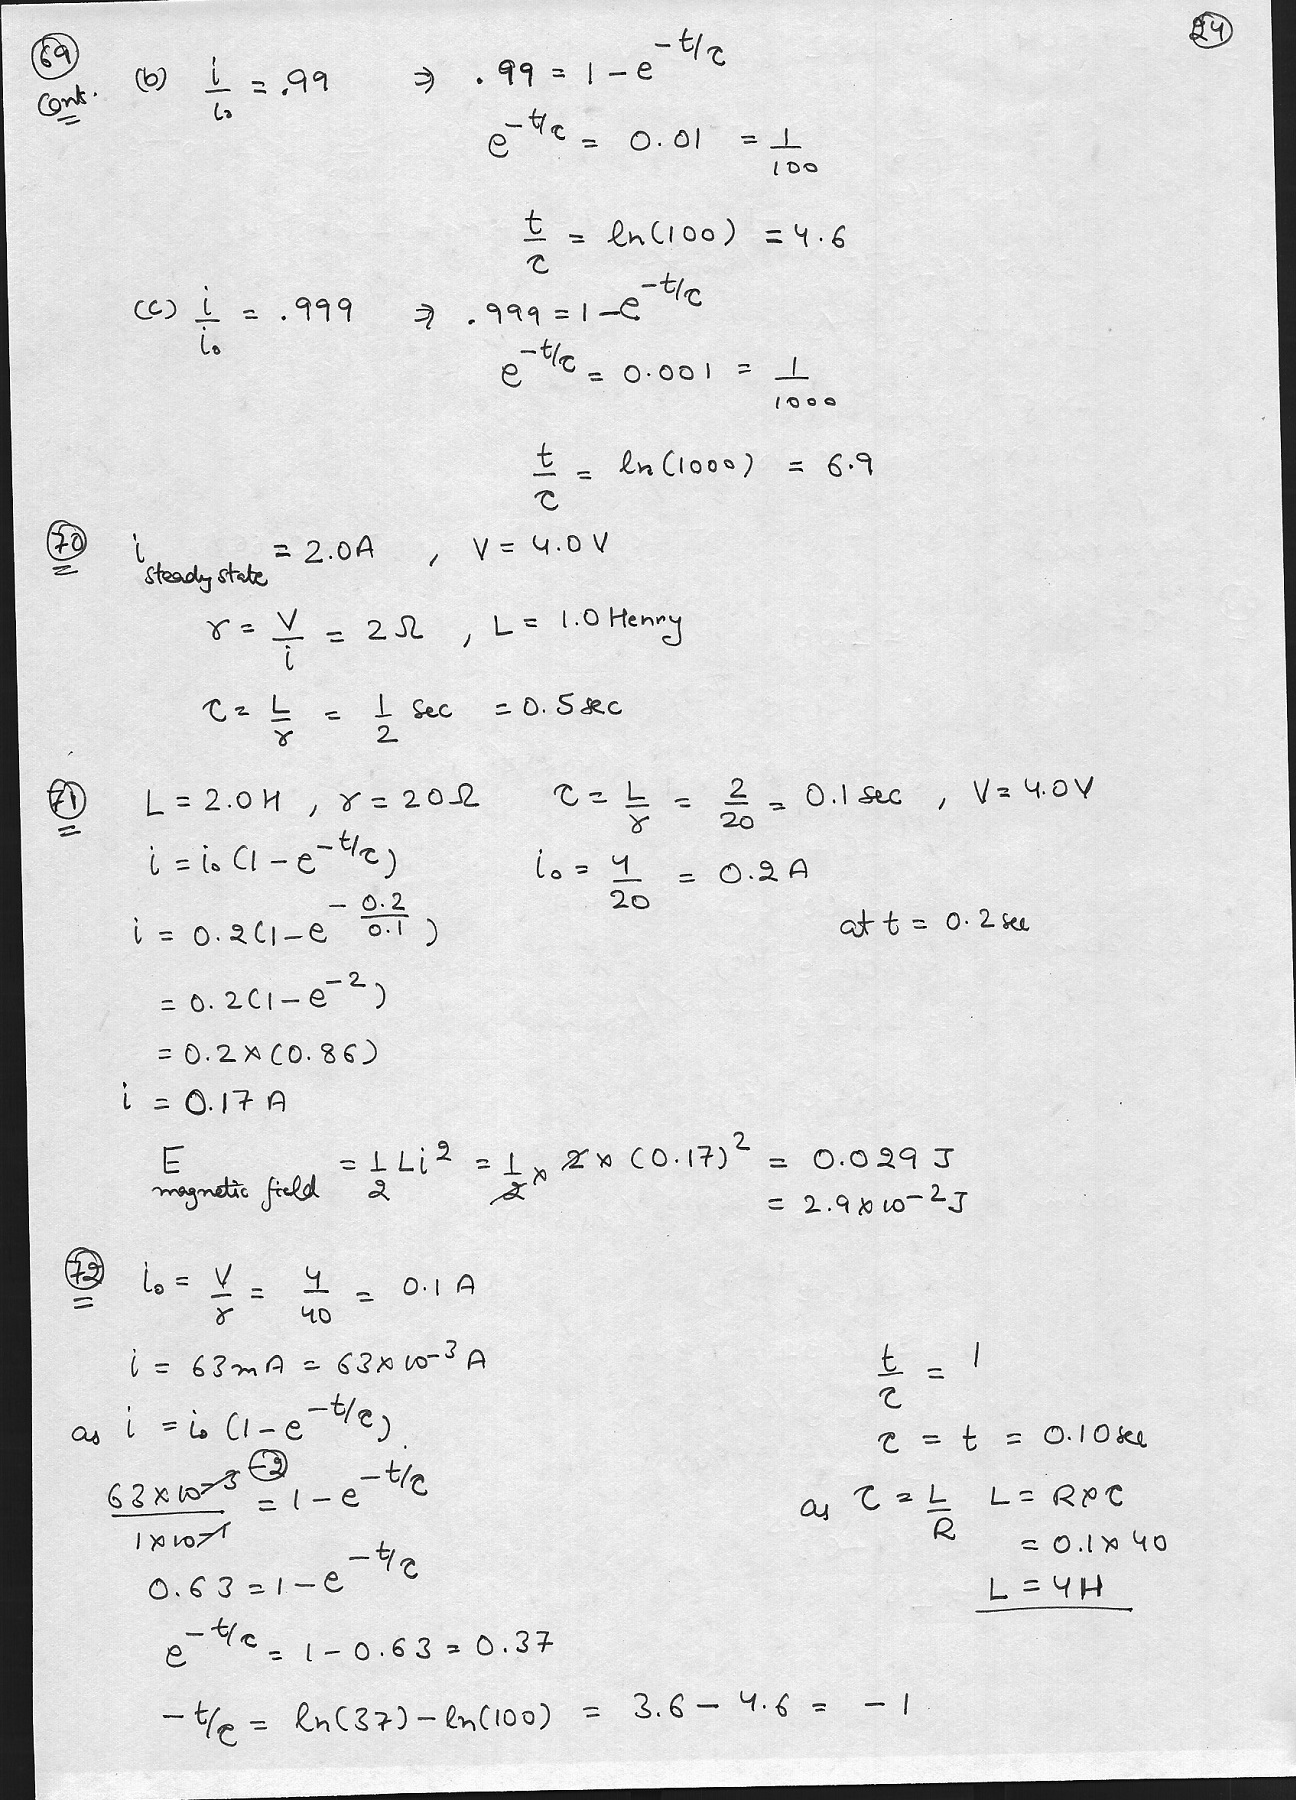 24
69 cont. (b) i/i₀ = .99 ⇒ .99 = 1 - e^(-t/τ)
e^(-t/τ) = 0.01 = 1/100
t/τ = ln(100) = 4.6
(c) i/i₀ = .999 ⇒ .999 = 1 - e^(-t/τ)
e^(-t/τ) = 0.001 = 1/1000
t/τ = ln(1000) = 6.9
70 i steady state = 2.0A , V = 4.0V
r = V/i = 2Ω , L = 1.0 Henry
τ = L/r = 1/2 sec = 0.5 sec
71 L = 2.0H , r = 20Ω τ = L/r = 2/20 = 0.1 sec , V = 4.0V
i = i₀ (1 - e^(-t/τ)) i₀ = 4/20 = 0.2 A
i = 0.2(1 - e^(-0.2/0.1)) at t = 0.2 sec
= 0.2(1 - e^(-2))
= 0.2 × (0.86)
i = 0.17 A
E magnetic field = 1/2 Li² = 1/2 × 2 × (0.17)² = 0.029 J
= 2.9 × 10⁻² J
72 i₀ = V/r = 4/40 = 0.1 A
i = 63 mA = 63 × 10⁻³ A
as i = i₀ (1 - e^(-t/τ))
63 × 10⁻³ / 1 × 10⁻¹ -2 = 1 - e^(-t/τ)
0.63 = 1 - e^(-t/τ)
e^(-t/τ) = 1 - 0.63 = 0.37
-t/τ = ln(37) - ln(100) = 3.6 - 4.6 = -1
t/τ = 1
τ = t = 0.10 sec
as τ = L/R L = R × τ
= 0.1 × 40
L = 4H